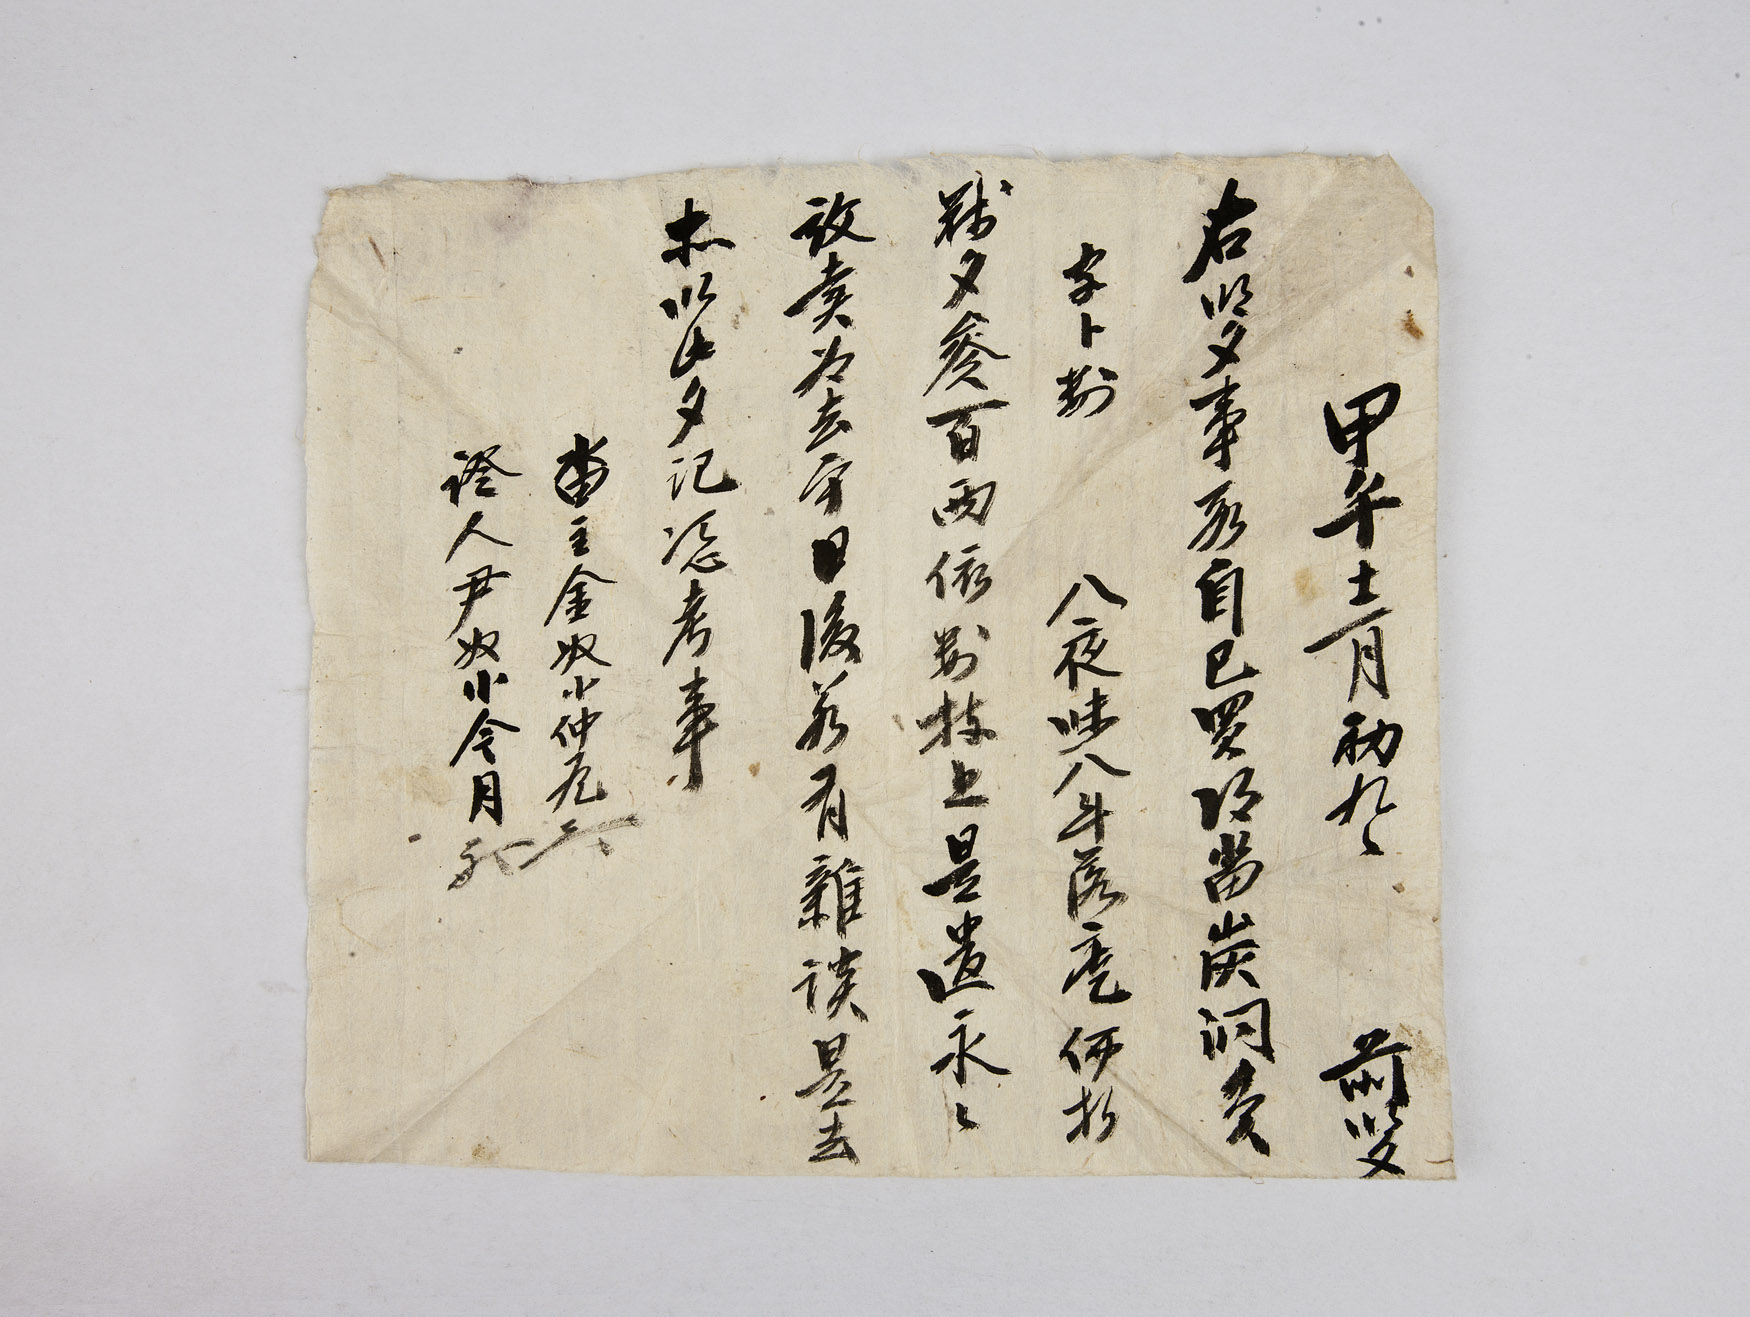 甲午十二月初九日 前明文
右明文事段自己買得畓炭洞員
字卜數 八夜味八斗落庫價折
錢文參百両依數捧上是遣永〻
放賣爲去乎日後若有雜談是去
等以此文記憑考事
畓主金奴小仲尼
證人尹奴小今月